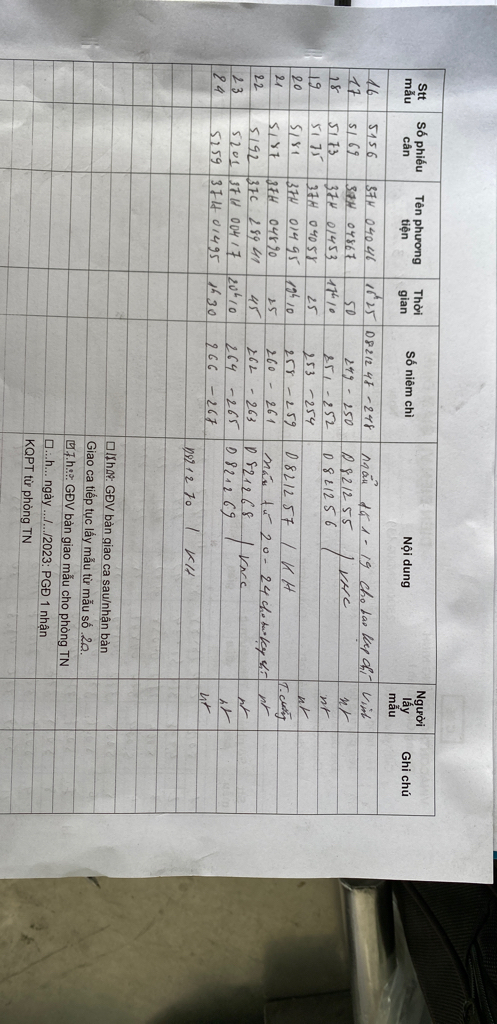 Stt mẫu Số phiếu cân Tên phương tiện Thời gian Số niêm chì Nội dung Người lấy mẫu Ghi chú
16 5156 37H 04046 16h25 D821247-248 Mẫu từ 1-19 cho bao Vinh
17 5169 37H 04867 50 249-250 D821255 / VNC nt
18 5173 37H 01453 17h10 251-252 D821256 nt
19 5175 37H 04058 25 253-254 nt
20 5181 37H 01495 19h10 258-259 D821257 / KH T. Cường
21 5187 37H 04890 25 260-261 Mẫu từ 20-24 cho nt
22 5192 37C 28941 45 262-263 D821268 / VNC nt
23 5201 37H 00417 20h10 264-265 D821269 nt
24 5259 37H 01495 1h30 266-267 nt
D821270 / KH
GĐV bàn giao ca sau/nhận bàn
Giao ca tiếp tục lấy mẫu từ mẫu số 20.
GĐV bàn giao mẫu cho phòng TN
☐...h... ngày .../.../2023: PGĐ 1 nhận
KQPT từ phòng TN